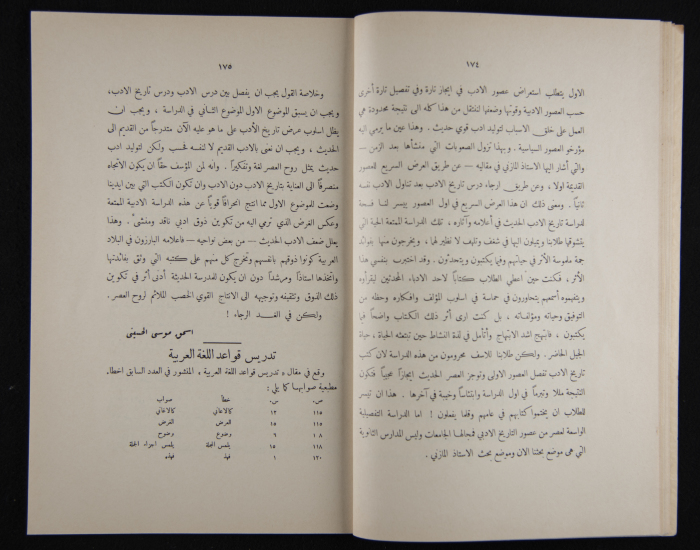 ١٧٤
الاول يتطلب استعراض عصور الادب في ايجاز تارة وفي تفصيل تارة أخرى
حسب العصور الادبية وقوتها وضعفها لننتقل من هذا كله الى نتيجة محدودة هي
العمل على خلق الاسباب لتوليد ادب قوي حديث . وهذا عين ما يرمي اليه
مؤرخو العصور السياسية . وبهذا تزول الصعوبات التي منشأها بعد الزمن —
والتي أشار اليها الاستاذ المازني في مقاليه — عن طريق العرض السريع للعصور
القديمة اولا ، وعن طريق ارجاء درس تاريخ الادب بعد تناول الادب نفسه
ثانياً . ومعنى ذلك ان هذا العرض السريع في اول العصور ييسر لنا فسحة
لدراسة تاريخ الادب الحديث في أعلامه وآثاره ، تلك الدراسة الممتعة الحية التي
يتشوقها طلابنا ويقبلون اليها في شغف وتلهف لا نظير لهما ، ويخرجون منها بفوائد
جمة ملموسة الأثر في حياتهم وفيما يكتبون ويتحدثون . وقد اختبرت بنفسي هذا
الأثر ، فكنت حين اعطي الطلاب كتاباً لاحد الادباء المحدثين ليقرأوه
ويتفهموه أسمعهم يتحاورون في حماسة في اسلوب المؤلف وافكاره وحظه من
التوفيق وحياته ومؤلفاته ، بل كنت ارى أثر ذلك الكتاب واضحاً فيما
يكتبون ، فابتهج اشد الابتهاج وأتأمل في لذة النشاط حين تبتعثه الحياة ، حياة
الجيل الحاضر . ولكن طلابنا للاسف محرومون من هذه الدراسة لان كتب
تاريخ الادب تفصل العصور الاولى وتوجز العصر الحديث ايجازاً معيباً فتكون
النتيجة مللا وتبرماً في اول الدراسة وابتئاساً وخيبة في آخرها . هذا ان تيسر
للطلاب ان يختموا كتابهم في عامهم وقلما يفعلون ! اما الدراسة التفصيلية
الواسعة لعصر من عصور التاريخ الادبي فمجالها الجامعات وليس المدارس الثانوية
التي هي موضع بحثنا الان وموضع بحث الاستاذ المازني .
١٧٥
وخلاصة القول يجب ان يفصل بين درس الادب ودرس تاريخ الادب ،
ويجب ان يسبق الموضوع الاول الموضوع الثاني في الدراسة ، ويجب ان
يظل اسلوب عرض تاريخ الأدب على ما هو عليه الآن متدرجاً من القديم الى
الحديث ، ويجب ان نعنى بالادب القديم لا لنفسه فحسب ولكن لتوليد ادب
حديث يمثل روح العصر لغة وتفكيراً . وانه لمن المؤسف حقاً ان يكون الاتجاه
منصرفاً الى العناية بتاريخ الادب دون الادب وان تكون الكتب التي بين ايدينا
وضعت للموضوع الاول مما انتج انحرافاً قوياً عن هذه الدراسة الادبية الممتعة
وعكس الغرض الذي نرمي اليه من تكوين ذوق ادبي ناقد ومنشئ . وهذا
يعلل ضعف الادب الحديث — من بعض نواحيه — فاعلامه البارزون في البلاد
العربية كونوا ذوقهم بانفسهم وتخرج كل منهم على كتبه التي وثق بفائدتها
واتخذها استاذاً ومرشداً دون ان يكون للمدرسة الحديثة أدنى أثر في تكوين
ذلك الذوق وتثقيفه وتوجيهه الى الانتاج القوي الخصب الملائم لروح العصر .
ولكن في الغد الرجاء !
اسحق موسى الحسيني
تدريس قواعد اللغة العربية
وقع في مقال « تدريس قواعد اللغة العربية » المنشور في العدد السابق اخطاء
مطبعية صوابها كما يلي :
ص. س. خطأ صواب
١١٥ ١٢ كالاغاني كالاغاني
١١٥ ١٥ العرض الغرض
١٠٨ ٦ وضوع وضوح
١١٨ ١٥ يلمس الجملة يلمس اجزاء الجملة
١٢٠ ١ فهذ فهذه